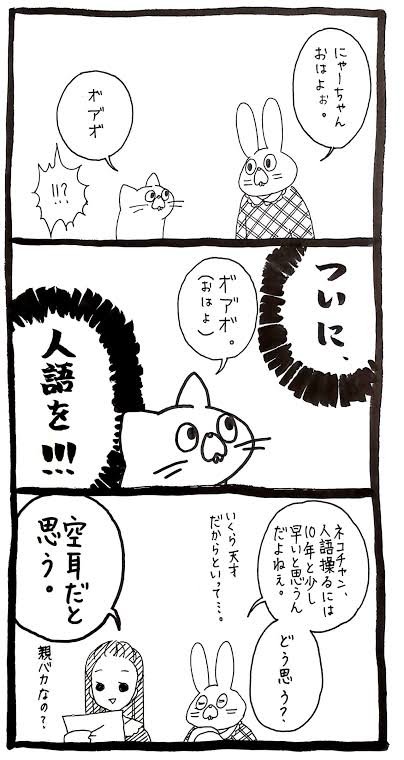 にゃーちゃん
おはよぉ。
オ゛アオ゛
!!?
ついに、
オ゛アオ゛。
(おはよ)
人語を!!!
ネコチャン、
人語操るには
10年と少し
早いと思うん
だよねぇ。
どう思う?
いくら天才
だからといって…。
空耳だと
思う。
親バカなの?